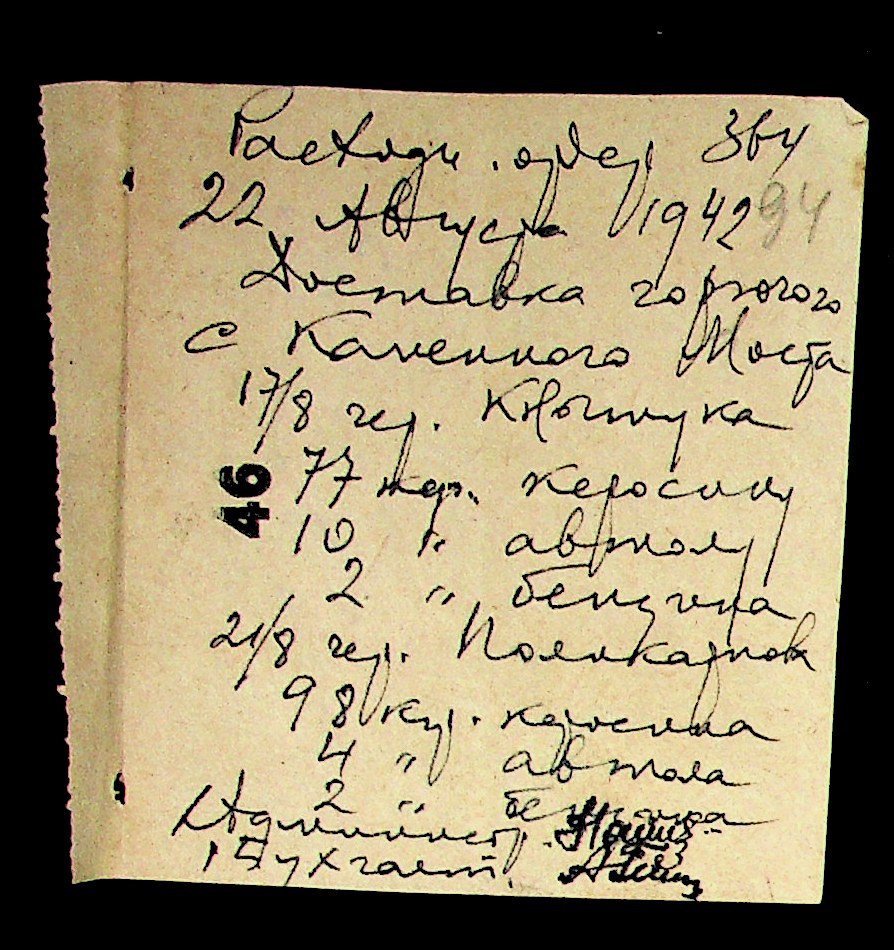 Расходн. ордер 364
22 Августа 1942 94
Доставка горючого
с Каменного Моста
17/8 чер. Кнотука
46 77 кгр. керосину
10 " автолу
2 " бензина
21/8 чер. Поликарпова
98 кгр. керосина
4 " автола
2 " бензина
Администр.
Бухгалт.